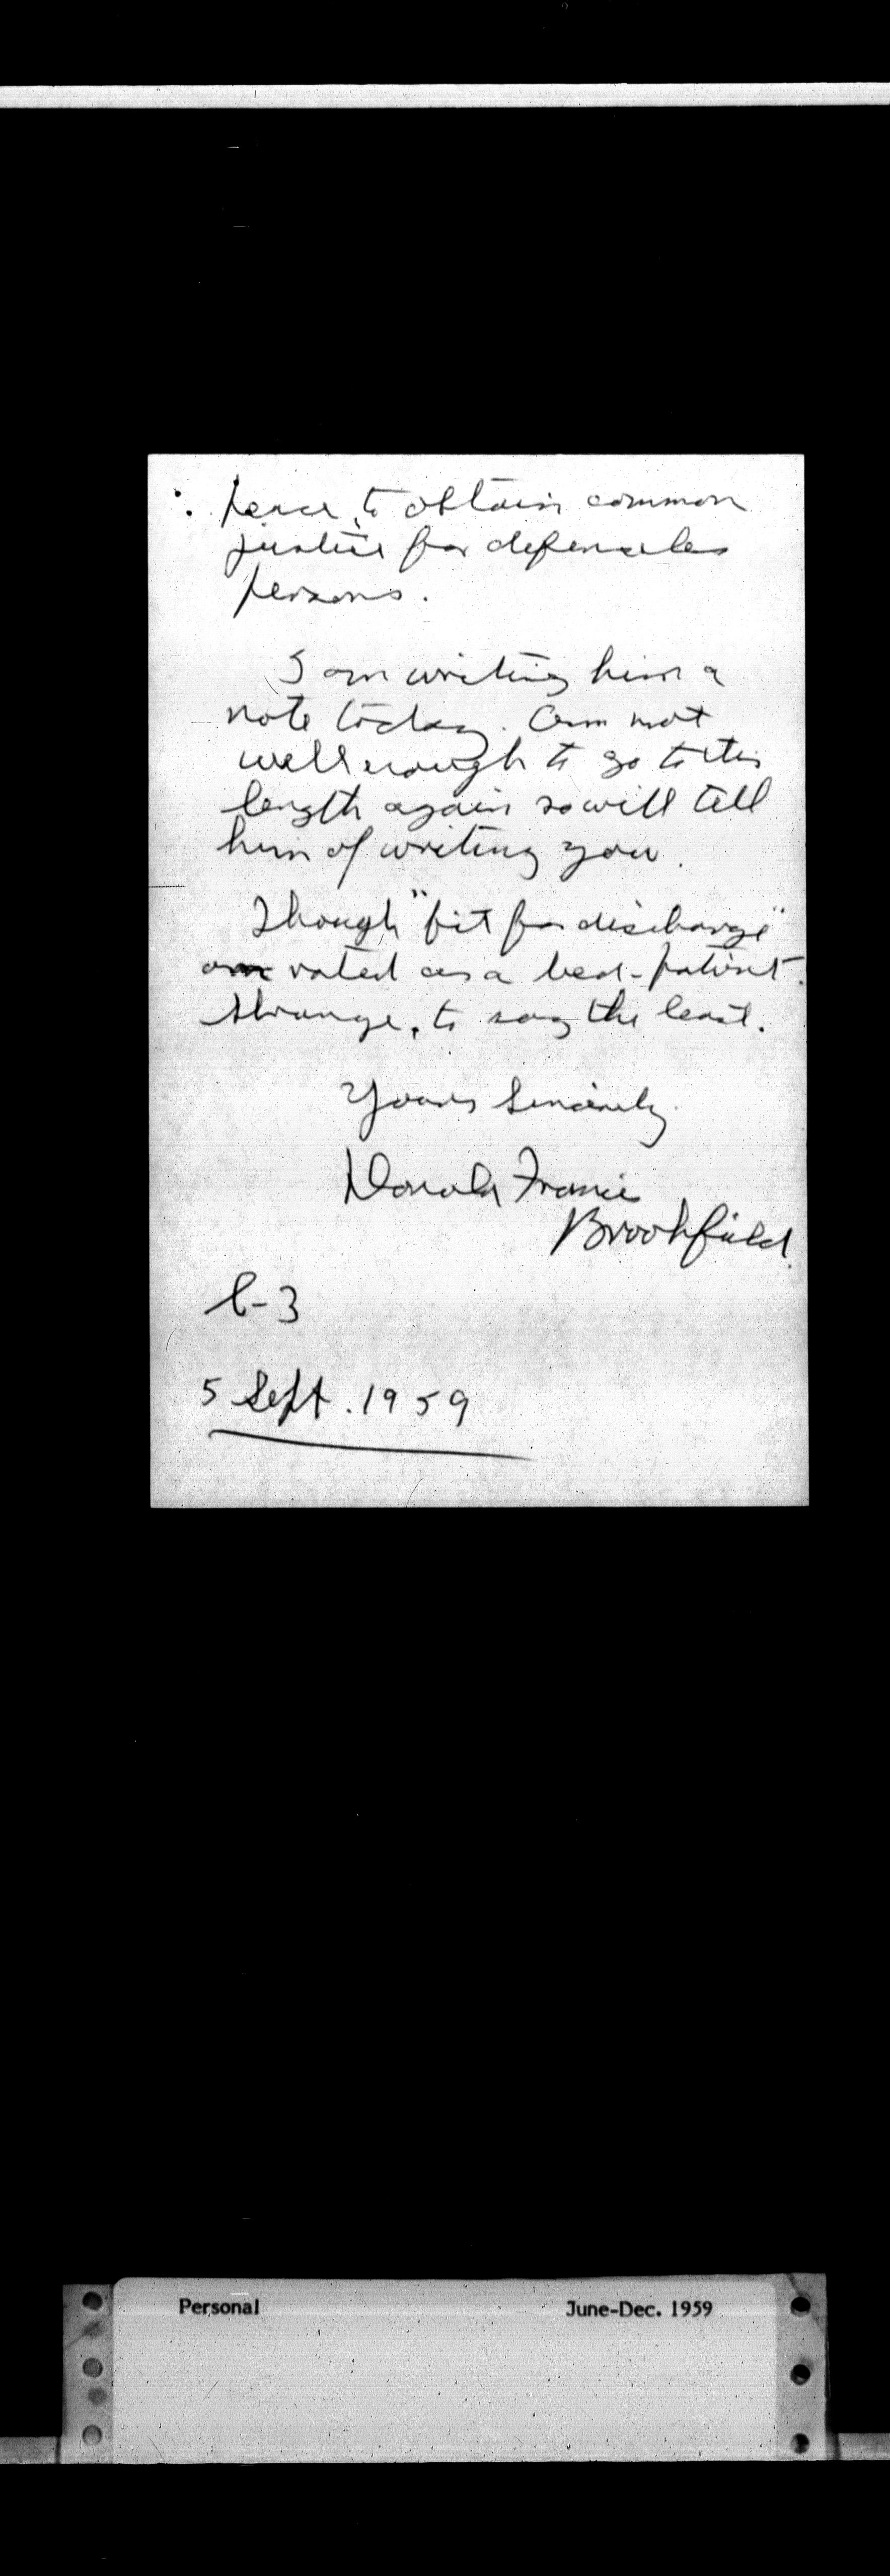 peace, to obtain common
justice for defenceless
persons.
I am writing him a
note today. Am not
well enough to go to this
length again so will tell
him of writing you.
Though "fit for discharge"
am rated as a bed-patient.
Strange, to say the least.
Yours Sincerely
Donald Francis
Brookfield.
6-3
5 Sept. 1959
Personal June-Dec. 1959